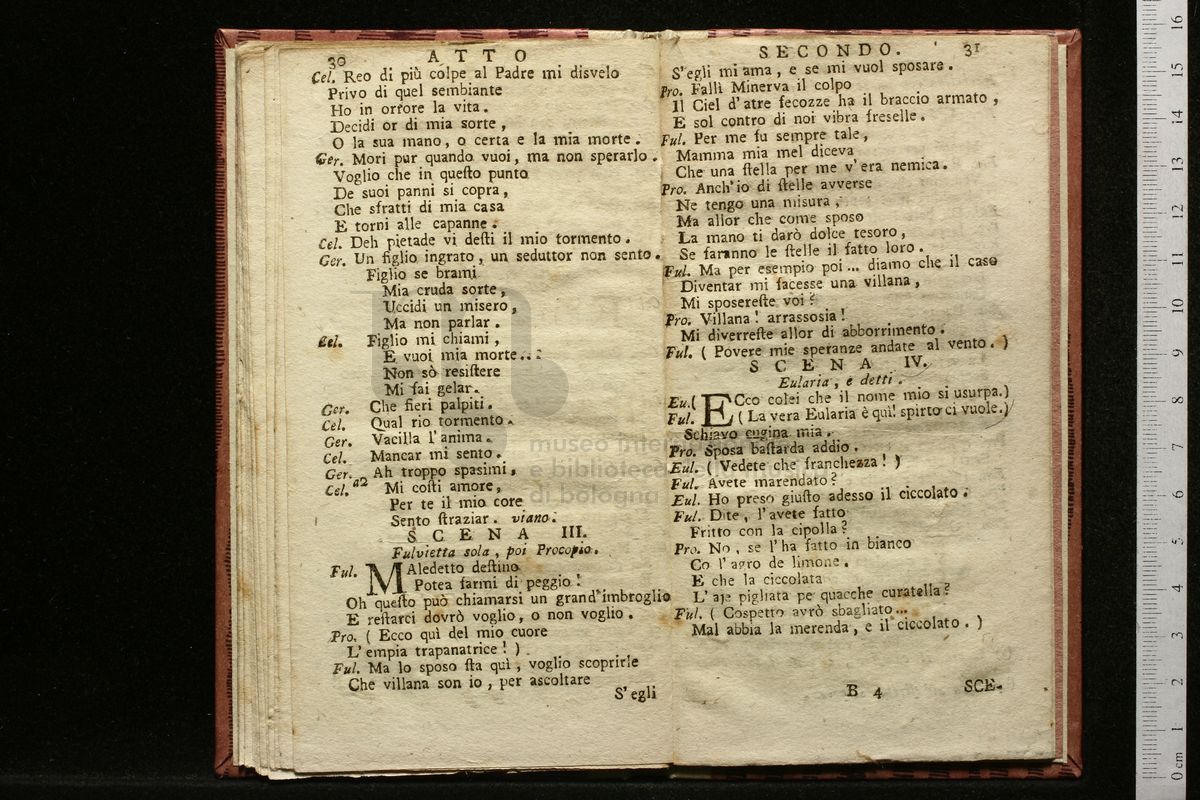 30 ATTO
Cel. Reo di più colpe al Padre mi disvelo
Privo di quel sembiante
Ho in orrore la vita.
Decidi or di mia sorte,
O la sua mano, o certa e la mia morte.
Ger. Mori pur quando vuoi, ma non sperarlo.
Voglio che in queſto punto
De suoi panni si copra,
Che sfratti di mia casa
E torni alle capanne.
Cel. Deh pietade vi deſti il mio tormento.
Ger. Un figlio ingrato, un seduttor non sento.
Figlio se brami
Mia cruda sorte,
Uccidi un misero,
Ma non parlar.
Cel. Figlio mi chiami,
E vuoi mia morte...
Non sò resiſtere
Mi fai gelar.
Ger. Che fieri palpiti.
Cel. Qual rio tormento.
Ger. Vacilla l'anima.
Cel. Mancar mi sento.
Ger. Ah troppo spasimi,
Cel. a2 Mi coſti amore,
Per te il mio core
Sento ſtraziar. viano.
SCENA III.
Fulvietta sola, poi Procopio.
Ful. MAledetto deſtino
Potea farmi di peggio!
Oh queſto può chiamarsi un grand'imbroglio
E reſtarci dovrò voglio, o non voglio.
Pro. (Ecco quì del mio cuore
L'empia trapanatrice!)
Ful. Ma lo sposo ſta quì, voglio scoprirle
Che villana son io, per ascoltare
S'egli
SECONDO. 31
S'egli mi ama, e se mi vuol sposare.
Pro. Fallì Minerva il colpo
Il Ciel d'atre fecozze ha il braccio armato,
E sol contro di noi vibra freselle.
Ful. Per me fu sempre tale,
Mamma mia mel diceva
Che una ſtella per me v'era nemica.
Pro. Anch'io di ſtelle avverse
Ne tengo una misura,
Ma allor che come sposo
La mano ti darò dolce tesoro,
Se faranno le ſtelle il fatto loro.
Ful. Ma per esempio poi... diamo che il caso
Diventar mi facesse una villana,
Mi sposereſte voi?
Pro. Villana! arrassosia!
Mi diverreſte allor di abborrimento.
Ful. (Povere mie speranze andate al vento.)
SCENA IV.
Eularia, e detti.
Eu. (ECco colei che il nome mio si usurpa.)
Ful. (La vera Eularia è quì! spirto ci vuole.)
Schiavo cugina mia.
Pro. Sposa baſtarda addio.
Eul. (Vedete che franchezza!)
Ful. Avete marendato?
Eul. Ho preso giuſto adesso il ciccolato.
Ful. Dite, l'avete fatto
Fritto con la cipolla?
Pro. No, se l'ha fatto in bianco
Co l'agro de limone.
E che la ciccolata
L'aje pigliata pe quacche curatella?
Ful. (Cospetto avrò sbagliato...
Mal abbia la merenda, e il ciccolato.)
B 4 SCE-
museo inter
e biblioteca della musica
di bologna
0 cm 1 2 3 4 5 6 7 8 9 10 11 12 13 14 15 16